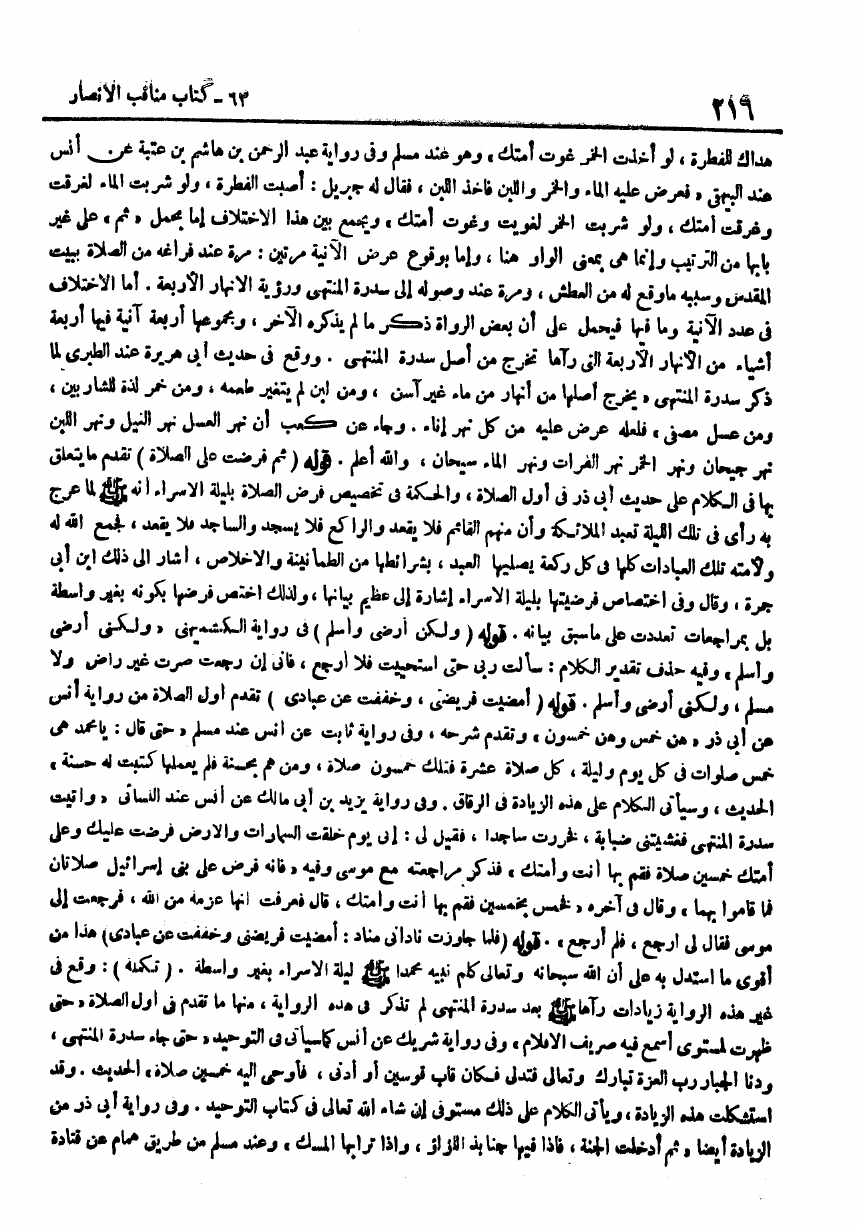 ٢١٩
٦٣ - كتاب مناقب الأنصار
هداك للفطرة ، لو أخذت الخر غوت أمتك » وهو عند مسلم وفى رواية عبد الرحمن بن هاشم بن عتبة عن أنس
عند البيهقى « فعرض عليه الماء والخمر واللبن فاخذ اللبن ، فقال له جبريل : أصبت الفطرة ، ولو شربت الماء لغرقت
وغرقت أمتك ، ولو شربت الخمر لغويت وغوت أمتك » ويجمع بين هذا الاختلاف إما بحمل « ثم » على غير
بابها من الترتيب وإنما هى بمعنى الواو هنا ، وإما بوقوع عرض الآنية مرتين : مرة عند فراغه من الصلاة ببيت
المقدس وسببه ماوقع له من العطش ، ومرة عند وصوله إلى سدرة المنتهى ورؤية الانهار الأربعة . أما الاختلاف
فى عدد الآنية وما فيها فيحمل على أن بعض الرواة ذكر ما لم يذكره الآخر ، ومجموعها أربعة آنية فيها أربعة
أشياء من الأنهار الأربعة التى رآها تخرج من أصل سدرة المنتهى . ووقع فى حديث أبى هريرة عند الطبرى لما
ذكر سدرة المنتهى « يخرج أصلها من أنهار من ماء غير آسن ، ومن لبن لم يتغير طعمه ، ومن خمر لذة للشاربين ،
ومن عسل مصفى » فلعله عرض عليه من كل نهر إناء . وجاء عن كعب أن نهر العسل نهر النيل ونهر اللبن
نهر جيحان ونهر الخمر نهر الفرات ونهر الماء سيحان ، والله أعلم . قوله ( ثم فرضت على الصلاة ) تقدم ما يتعلق
بها فى الكلام على حديث أبى ذر فى أول الصلاة ، والحكمة فى تخصيص فرض الصلاة بليلة الاسراء أنه ﷺ لما عرج
به رأى فى تلك الليلة تعبد الملائكة وأن منهم القائم فلا يقعد والراكع فلا يسجد والساجد فلا يقعد ، فجمع الله له
ولأمته تلك العبادات كلها فى كل ركعة يصليها العبد ، بشرائطها من الطمأنينة والاخلاص ، أشار الى ذلك ابن أبى
جمرة ، وقال وفى اختصاص فرضيتها بليلة الاسراء إشارة إلى عظيم بيانها ، ولذلك اختص فرضها بكونه بغير واسطة
بل بمراجعات تعددت على ماسبق بيانه . قوله ( ولكن أرضى وأسلم ) فى رواية الكشميهنى « ولكنى أرضى
وأسلم » وفيه حذف تقدير الكلام : سألت ربى حتى استحييت فلا أرجع ، فانى إن رجعت صرت غير راض ولا
مسلم ، ولكنى أرضى وأسلم . قوله ( أمضيت فريضتى ، وخففت عن عبادى ) تقدم أول الصلاة من رواية أنس
عن أبى ذر « هن خمس وهن خمسون » وتقدم شرحه ، وفى رواية ثابت عن أنس عند مسلم « حتى قال : يامحمد هى
خمس صلوات فى كل يوم وليلة ، كل صلاة عشرة فتلك خمسون صلاة ، ومن هم بحسنة فلم يعملها كتبت له حسنة »
الحديث ، وسيأتى الكلام على هذه الزيادة فى الرقاق . وفى رواية يزيد بن أبى مالك عن أنس عند النسائى « واتيت
سدرة المنتهى فغشيتنى ضبابة ، فخررت ساجدا ، فقيل لى : إنى يوم خلقت السماوات والارض فرضت عليك وعلى
أمتك خمسين صلاة فقم بها أنت وأمتك » فذكر مراجعته مع موسى وفيه « فانه فرض على بنى إسرائيل صلاتان
فما قاموا بهما » وقال فى آخره « فخمس بخمسين فقم بها أنت وامتك ، قال فعرفت انها عزمة من الله ، فرجعت إلى
موسى فقال لى ارجع ، فلم أرجع » . قوله (فلما جاوزت نادانى مناد : أمضيت فريضتى وخففت عن عبادى) هذا من
أقوى ما استدل به على أن الله سبحانه وتعالى كلم نبيه محمدا ﷺ ليلة الاسراء بغير واسطة . ( تكملة ) : وقع فى
غير هذه الرواية زيادات رآها ﷺ بعد سدرة المنتهى لم تذكر فى هذه الرواية ، منها ما تقدم فى أول الصلاة « حتى
ظهرت لمستوى أسمع فيه صريف الاقلام » وفى رواية شريك عن أنس كاسيأتى فى التوحيد « حتى جاء سدرة المنتهى ،
ودنا الجبار رب العزة تبارك وتعالى فتدلى فكان قاب قوسين أو أدنى ، فأوحى اليه خمسين صلاة » الحديث . وقد
استشكلت هذه الزيادة ، ويأتى الكلام على ذلك مستوفى إن شاء الله تعالى فى كتاب التوحيد . وفى رواية أبى ذر من
الزيادة أيضا « ثم أدخلت الجنة ، فاذا فيها جنابذ اللؤلؤ ، واذا ترابها المسك » وعند مسلم من طريق همام عن قتادة